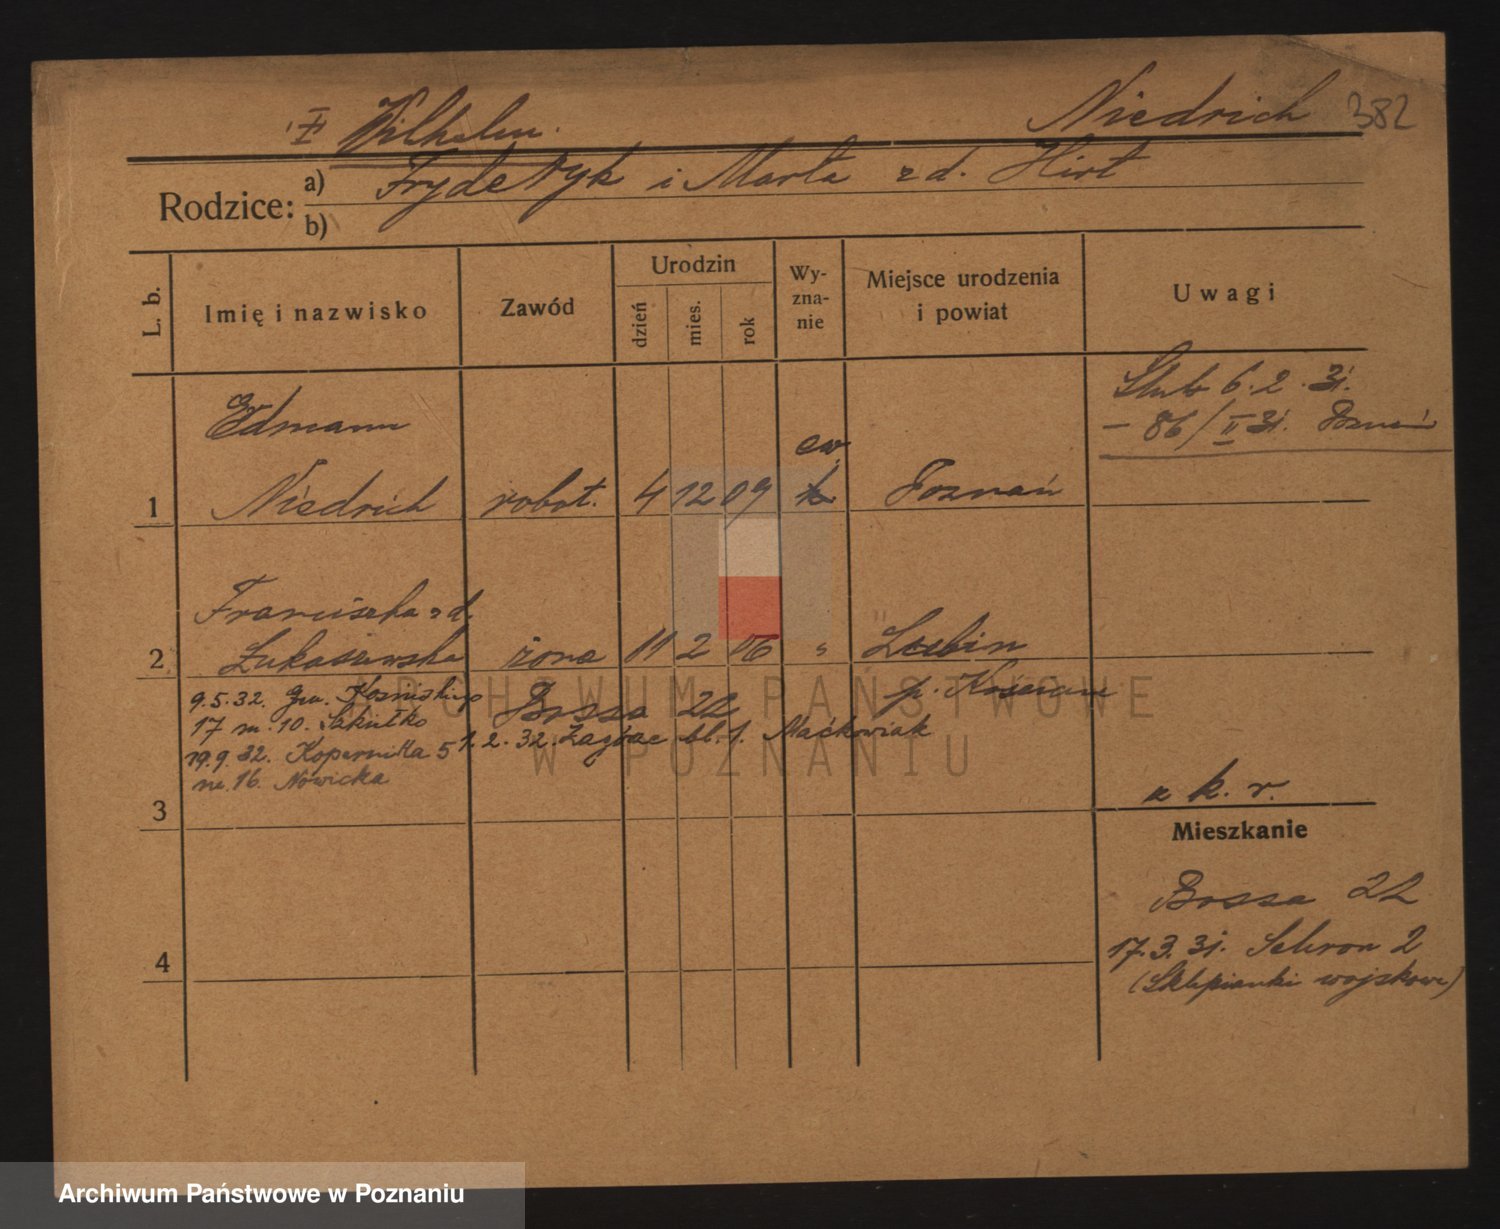 Wilhelm
Niedrich 382
Rodzice: a) Fryderyk i Marta z d. Hirt
b)
L. b. Imię i nazwisko Zawód Urodzin dzień mies. rok Wyzna-nie Miejsce urodzenia i powiat Uwagi
Ślub 6.2.31.
– 86/II 31. Poznań
Edmann
ew.
1 Niedrich robot. 4 12 09 Poznań
Franciszka z d.
2 Łukaszewska żona 11 2 06 " Lubin
p. Kościan
9.5.32. Gen. Kosińskiego
17 m. 10.
Bossa 22
1.2.32. Zagórze bl. 1. Maćkowiak
19.9.32. Kopernika 5
m. 16. Nowicka
k. r.
3
Mieszkanie
Bossa 22
17.3.31. Schron 2
4
(Sklepianki wojskowe)
ARCHIWUM PAŃSTWOWE
W POZNANIU
Archiwum Państwowe w Poznaniu